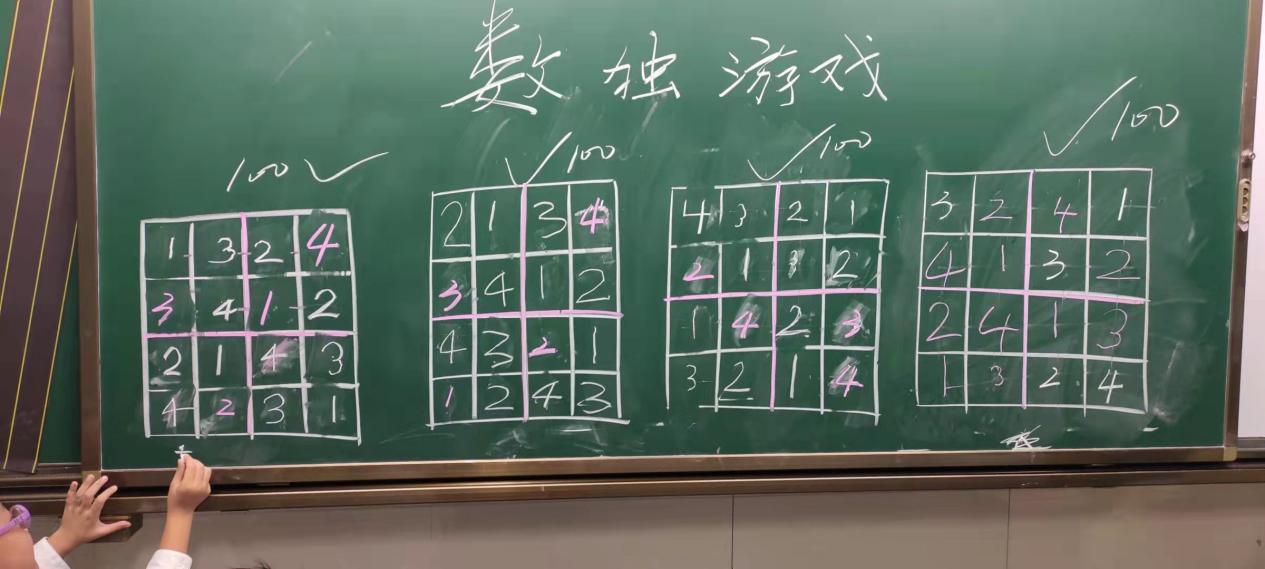 数独游戏
100 ✓
✓100
✓100
✓100
1 3 2 4
3 4 1 2
2 1 4 3
4 2 3 1
2 1 3 4
3 4 1 2
4 3 2 1
1 2 4 3
4 3 2 1
2 1 3 2
1 4 2 3
3 2 1 4
3 2 4 1
4 1 3 2
2 4 1 3
1 3 2 4